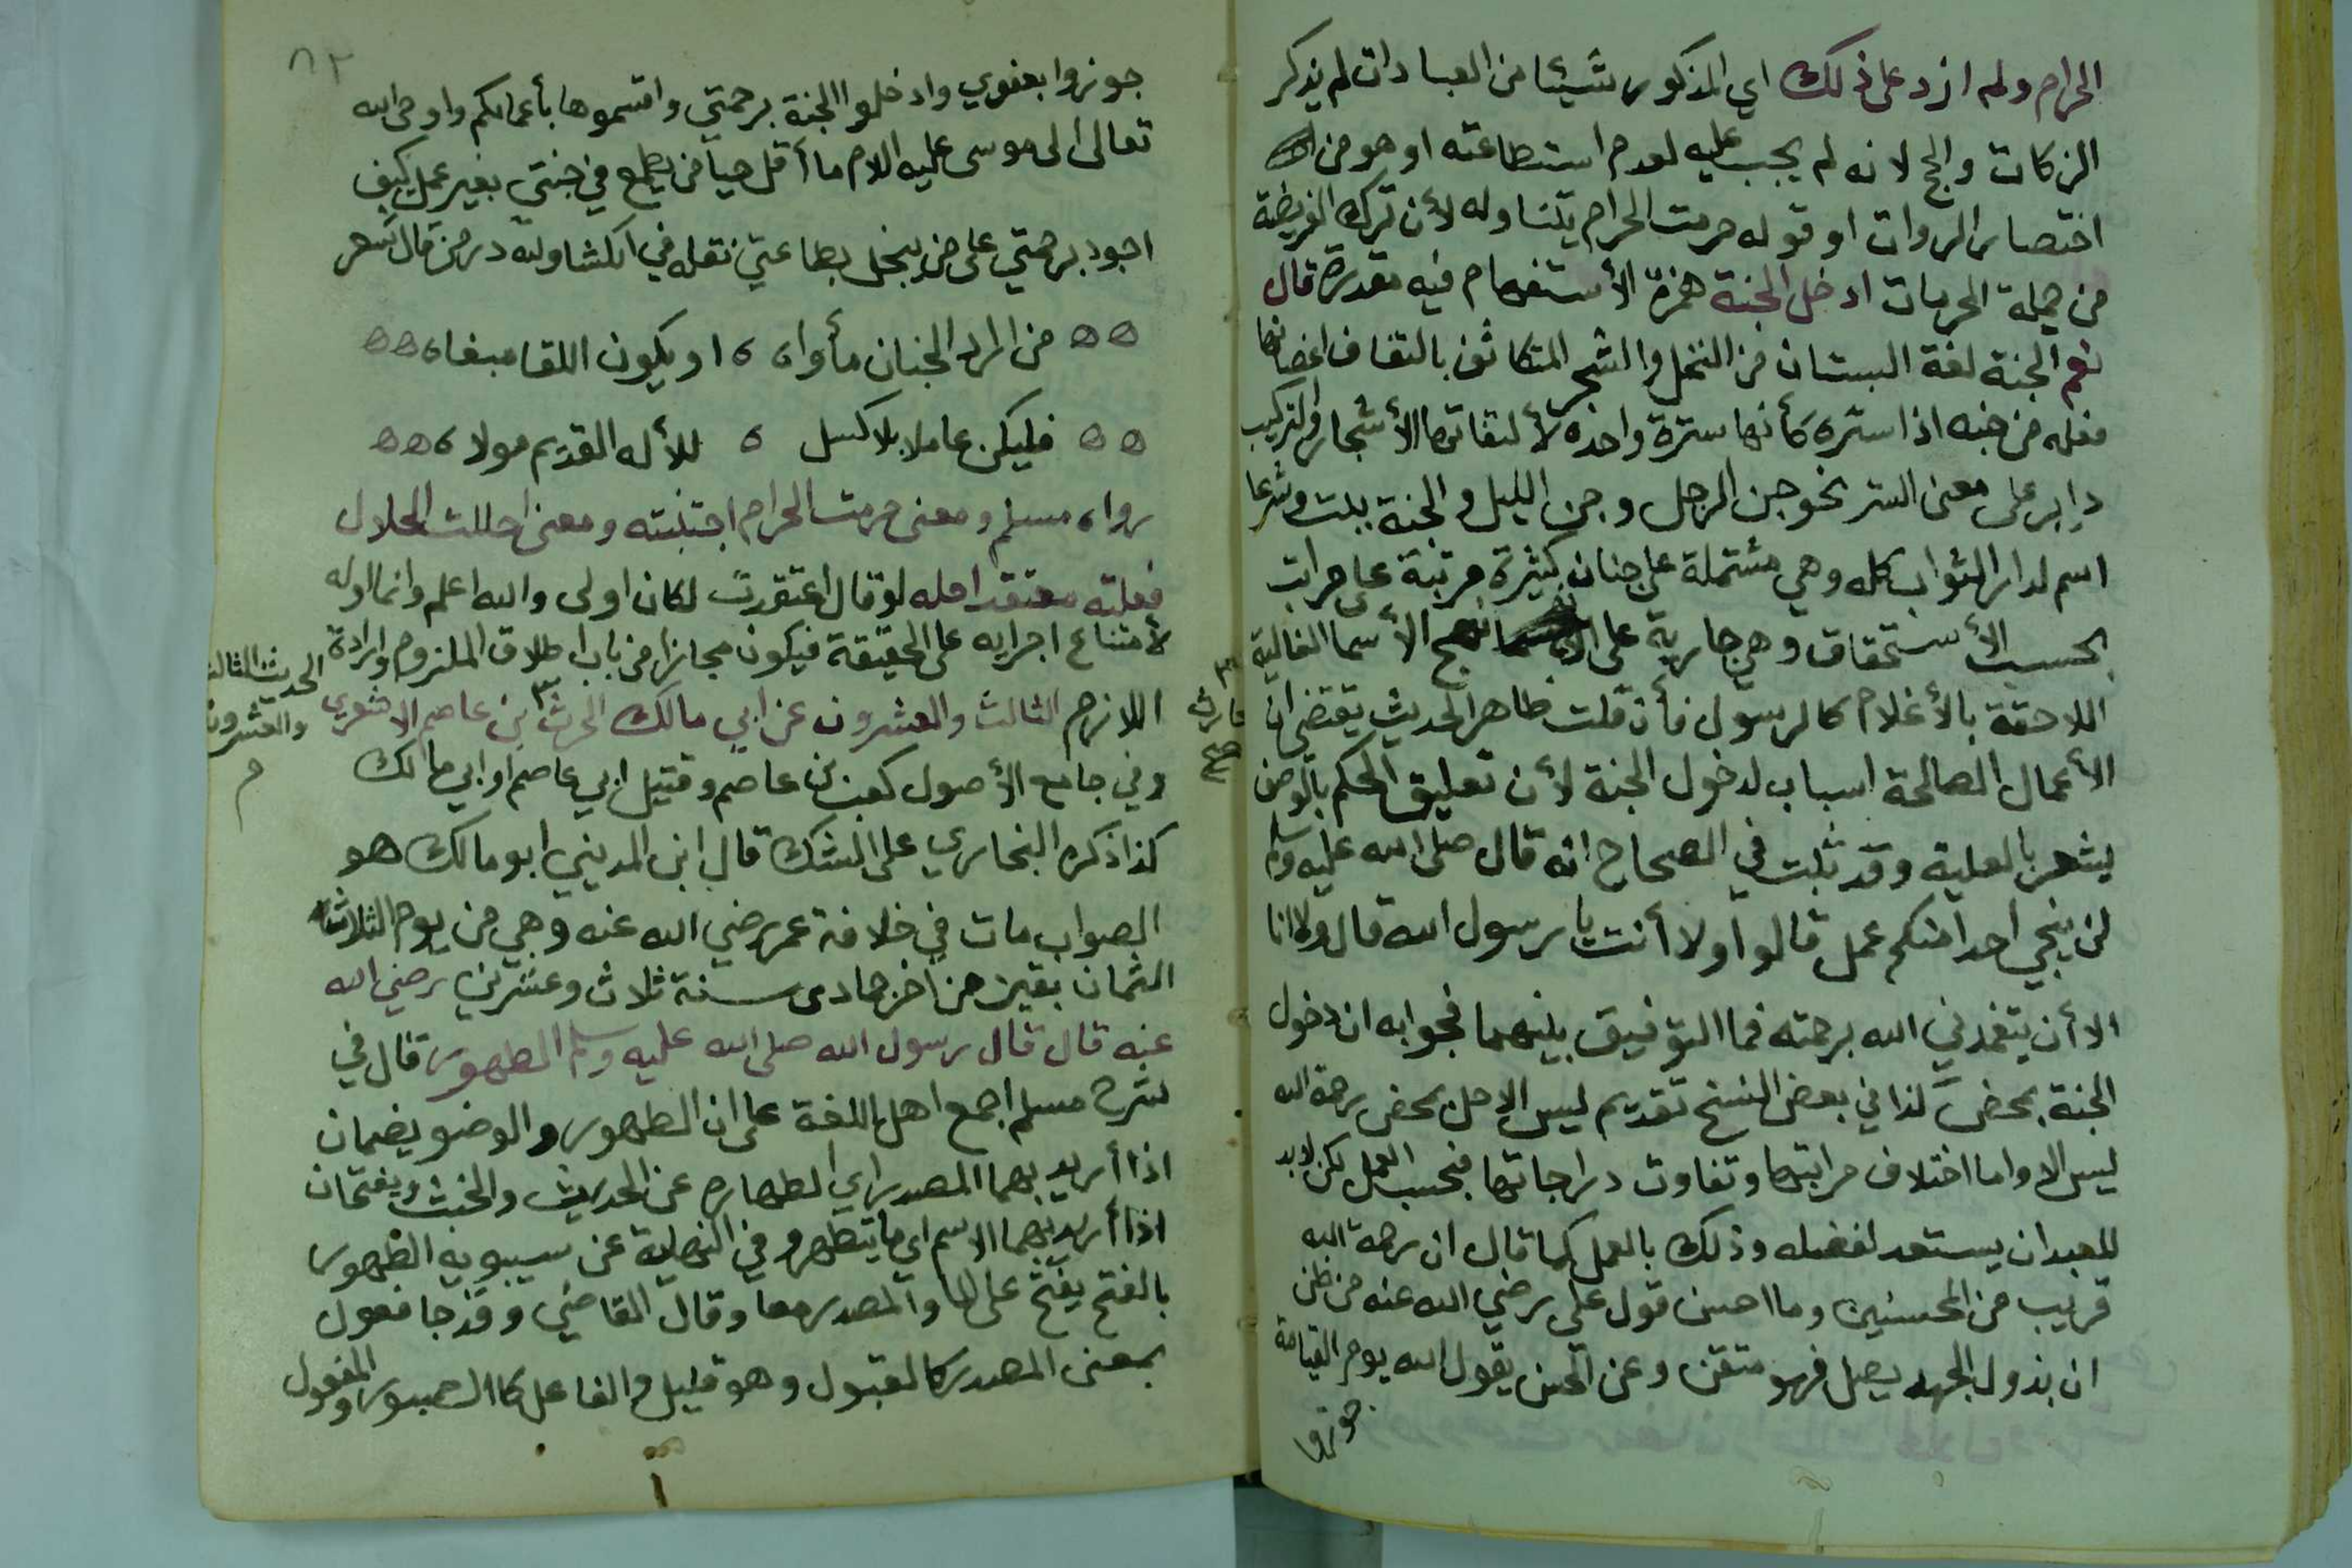 الحرام ولم ازد على ذلك اي المذكور شيئا من العبادات لم يذكر
الزكات والحج لانه لم يجب عليه لعدم استطاعته او هو من
اختصار الروات او قوله حرمت الحرام يتناوله لأن ترك الفريضة
من جملة الحرمات ادخل الجنة همزة الأستفهام فيه مقدرة قال
نعم الجنة لغة البستان من النخل والشجر المتكاثف بالتفاف اغصانها
فعله من جنه اذا ستره كأنها سترة واحدة لألتفاتها الأشجار والتركيب
داير على معنى الستر نحو جن الرجل وجن الليل والجنة بيلت وشرعا
اسم لدار الثواب كله وهي مشتملة على جنان كثيرة مرتبة على مراتب
بحسب الأستحقاق وهي جارية على نهج الأسما الغالبة
اللاحقة بالأغلام كالرسول فأن قلت ظاهر الحديث يقتضي ان
الأعمال الصالحة اسباب لدخول الجنة لأن تعليق الحكم بالوصف
يشعر بالعلية وقد ثبت في الصحاح انه قال صلى الله عليه وسلم
لن ينجي احدا منكم عمل قالوا ولا أنت يا رسول الله قال ولا انا
الا أن يتغمدني الله برحمته فما التوفيق بينهما فجوابه ان دخول
الجنة بمحض كذا في بعض النسخ تقديم ليس الا حل بمحض رحمة الله
ليس الا واما اختلاف مراتبها وتفاوت دراجاتها فبحسب العمل لكن لابد
للعبد ان يستعد لفضله وذلك بالعمل كما قال ان رحمة الله
قريب من المحسنين وما احسن قول علي رضي الله عنه من ظن
ان بذول الجهد يصل فهو متقن وعن الحسن يقول الله يوم القيامة
جوزوا
٨٢
جوزوا بعفوي وادخلوا الجنة برحمتي واقتسموها بأعمالكم واوحى الله
تعالى الى موسى عليه اللام ما أقل حيا من يطمع في جنتي بغير عمل كيف
اجود برحمتي على من يبخل بطاعتي نقله في الكشاف ولله در من قال شعر
من اراد الجنان مأواه ه او يكون اللقا مبغاه
فليكن عاملا بلا كسل ه للأله القديم مولاه
رواه مسلم ومعنى حرمت الحرام اجتنبته ومعنى احللت الحلال
فعلته معتقدا حله لو قال اعتقدت لكان اولى والله اعلم وانما اوله
لأمتناع اجرايه على الحقيقة فيكون مجازا من باب اطلاق الملزوم وارادة
اللازم الثالث والعشرون عن ابي مالك الحرث ابن عاصم الاشعري
الحديث الثالث
والعشرون
م
حارث
صح
وفي جامع الأصول كعب بن عاصم وقتيل ابي عاصم او ابي مالك
كذا ذكره البخاري على الشك قال ابن المديني ابو مالك هو
الصواب مات في خلافة عمر رضي الله عنه وهي من يوم الثلاثا
الثمان بقين من أخر جمادى سنة ثلاث وعشرين رضي الله
عنه قال قال رسول الله صلى الله عليه وسلم الطهور قال في
شرح مسلم اجمع اهل اللغة على ان الطهور والوضو يضمان
اذا أريد بهما المصدر اي الطهاره عن الحديث والخبث ويفتحان
اذا أريد بهما الاسم اي ما يتطهر وفي النهاية عن سيبويه الطهور
بالفتح يفتح على الما والمصدر معا وقال القاضي وقد جا فعول
بمعنى المصدر كالقبول وهو قليل والفاعل كاالصبور والمفعول